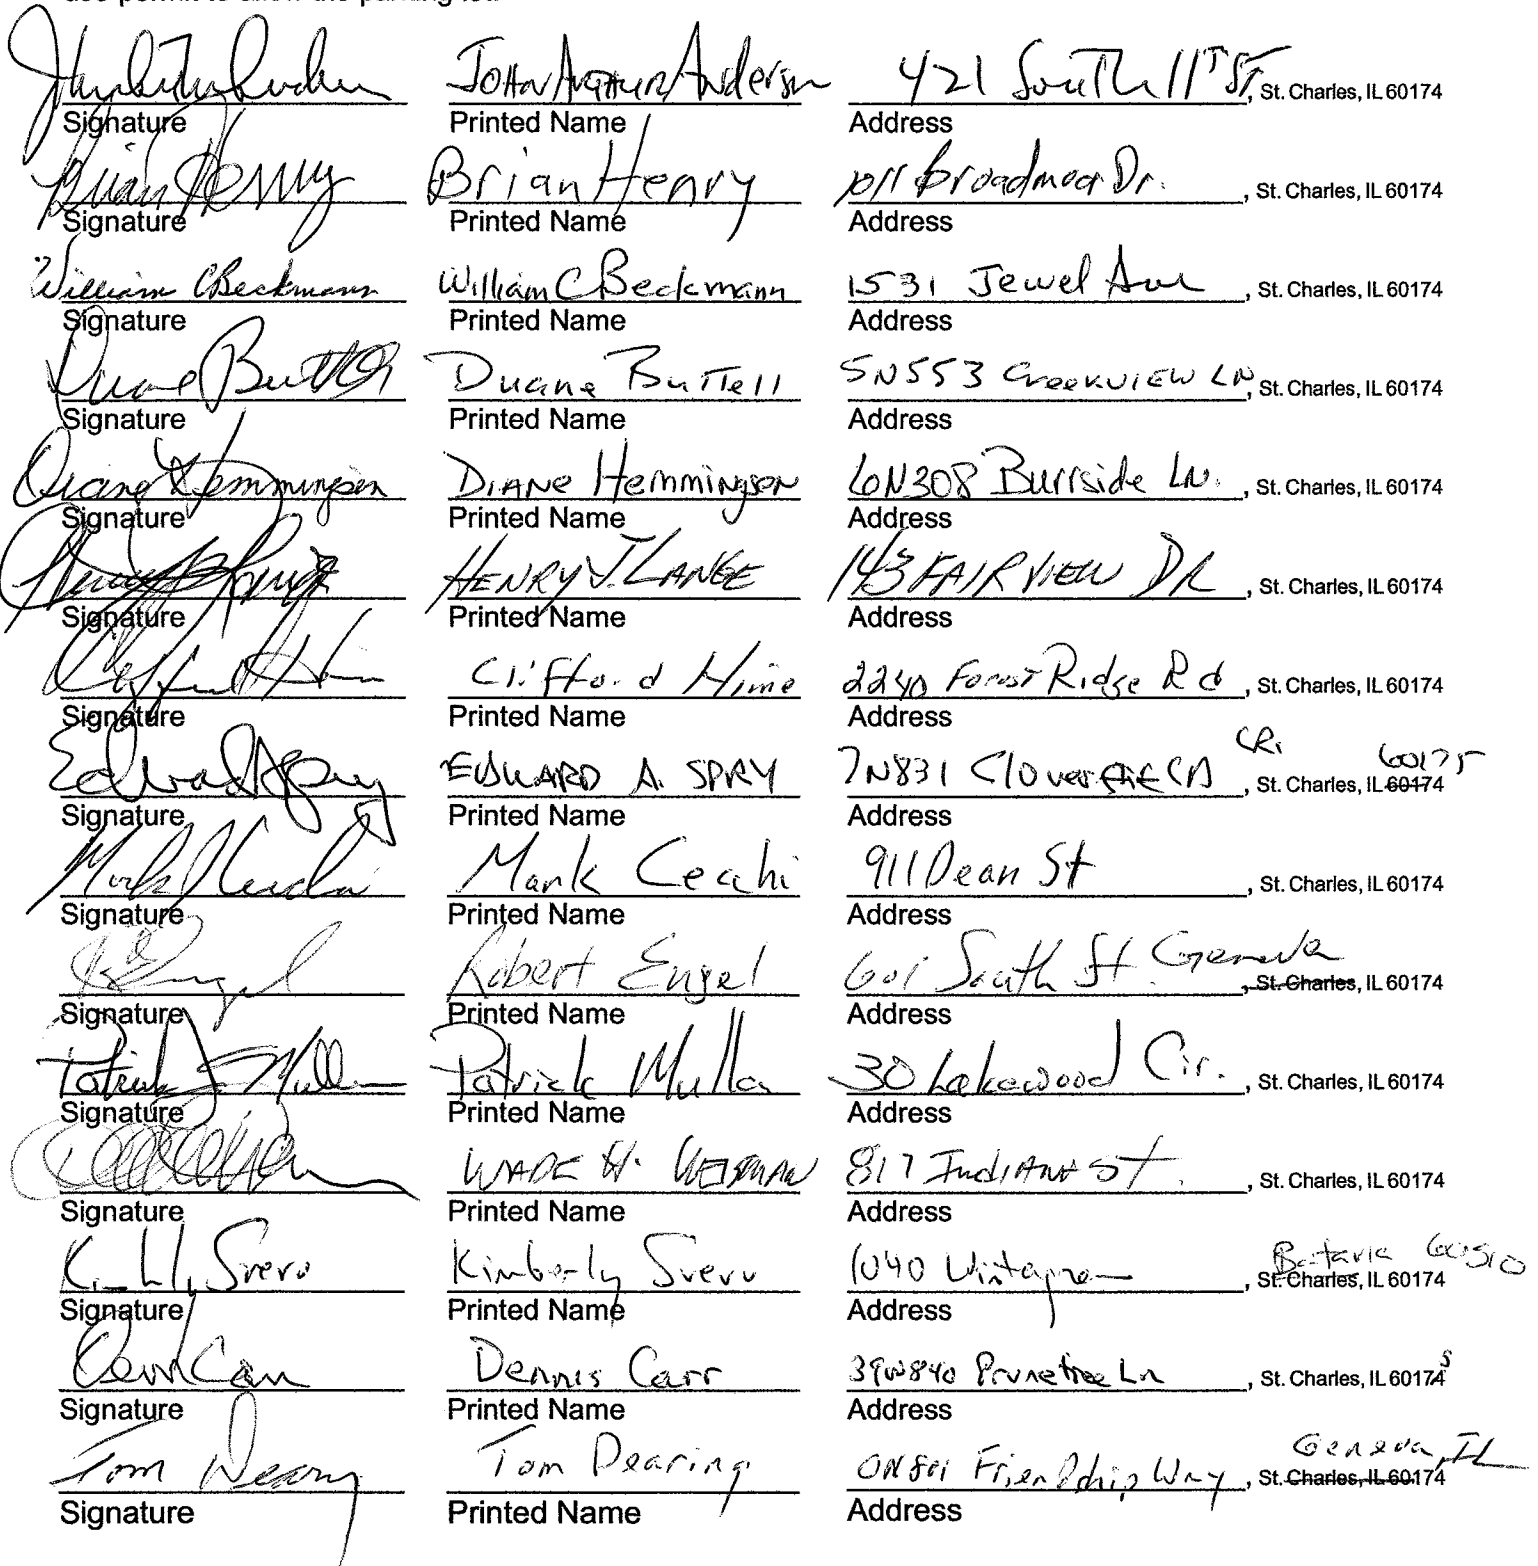 use permit to allow the parking lot.
John Arthur Anderson 421 South 11th St. , St. Charles, IL 60174
Signature Printed Name Address
Brian Henry Brian Henry 1011 Broadmoor Dr. , St. Charles, IL 60174
Signature Printed Name Address
William C Beckmann William C Beckmann 1531 Jewel Ave , St. Charles, IL 60174
Signature Printed Name Address
Duane Buttell Duane Buttell 5N553 Creekview LN , St. Charles, IL 60174
Signature Printed Name Address
Diane Hemmingson Diane Hemmingson 6N308 Burrside LN. , St. Charles, IL 60174
Signature Printed Name Address
HENRY J. LANGE 143 FAIRVIEW DR , St. Charles, IL 60174
Signature Printed Name Address
Clifford Hime 2240 Forest Ridge Rd , St. Charles, IL 60174
Signature Printed Name Address
Edward A Spry EDWARD A. SPRY 7N831 Cloverfield CR. , St. Charles, IL 60174 60175
Signature Printed Name Address
Mark Cecchi 911 Dean St , St. Charles, IL 60174
Signature Printed Name Address
Robert Engel 601 South St. Geneva , St. Charles, IL 60174
Signature Printed Name Address
Patrick J Mullen Patrick Mullen 30 Lakewood Cir. , St. Charles, IL 60174
Signature Printed Name Address
WADE H. 817 INDIANA ST. , St. Charles, IL 60174
Signature Printed Name Address
Kimberly Svevo 1040 Batavia 60510 St. Charles, IL 60174
Signature Printed Name Address
Denn Carr Dennis Carr 39W840 Prunetree Ln , St. Charles, IL 60174 5
Signature Printed Name Address
Tom Dearing Tom Dearing 0N801 Friendship Way Geneva, IL , St. Charles, IL 60174
Signature Printed Name Address